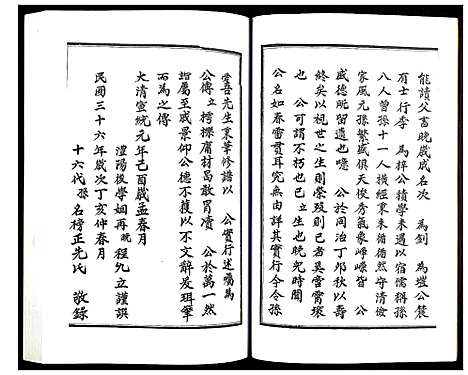 能讀父書晚歲成名次　為釗　為塏公裳
有士行季　為梓公積學未遇以宿儒稱孫
八人曾孫十一人橫經東來循循然守清儉
家風元孫繁盛俱天俊秀氣象崢嶸皆　公
盛德所留遺也噫　公於同治丁卯秋以壽
終矣以視世之生則榮歿則已者奚啻霄壤
也　公可謂不朽也已立生也晚兒時聞
公名如春雷貫耳究無由詳其實行今令孫
堂吾先生裒華修譜以　公實行述囑為
公傳立樗櫟庸材曷敢冒瀆　公於萬一然
誼屬至戚景仰公德不獲以不文辭爰珥筆
而為之傳
大清宣統元年己酉歲孟春月
澧陽後學姻再晚程夕立謹譔
民國三十六年歲次丁亥仲春月
十六代孫名榜正先氏　敬錄